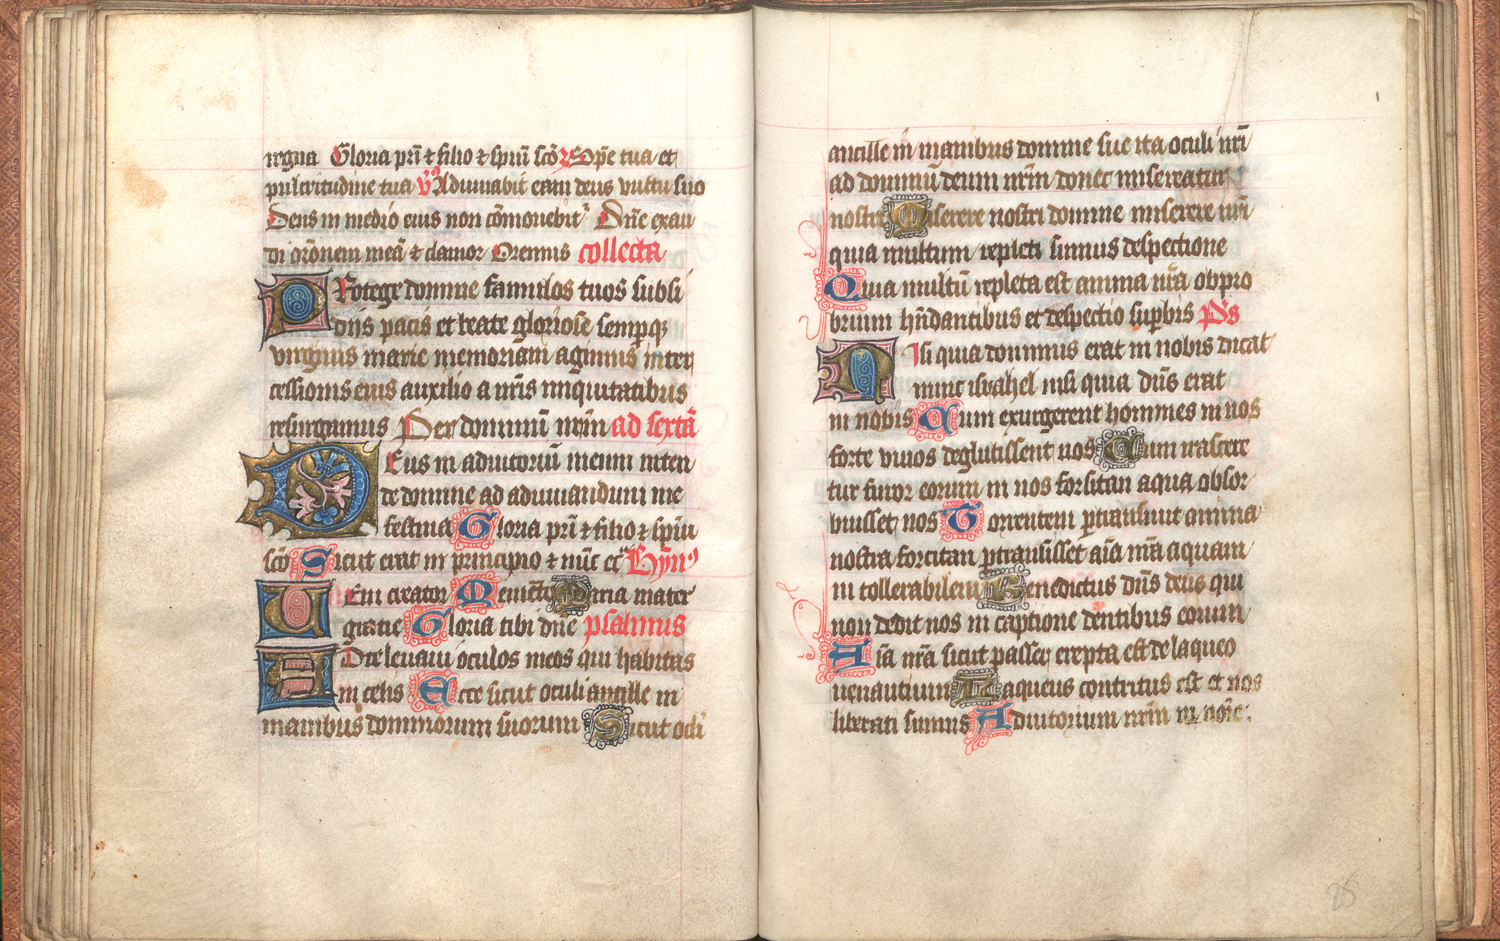 regna Gloria pri͂ ⁊ filio ⁊ spiri͂ sco͂ Spe͂ tua et
pulcritudine tua v͂ Adiuuabit eam deus vultu suo
Deus in medio eius non co͂mouebit᷑ Dn͂e exau
di oro͂nem mea͂ ⁊ clamor Oremus collecta
Protege domine famulos tuos subsi
diis pacis et beate gloriose semperqꝫ
virginis marie memoriam agimus inter
cessionis eius auxilio a nr͂is iniquitatibus
resurgamus Per dominu͂ nrm͂ ad sexta͂
Deus in adiutoriu͂ meum inten
de domine ad adiuuandum me
festina Gloria pri͂ ⁊ filio ⁊ spiu͂
sco͂ Sicut erat in principio ⁊ nu͂c ec͂ Hy͂n
Veni creator Meme͂to Maria mater
gratie Gloria tibi dn͂e psalmus
Ad te leuaui oculos meos qui habitas
in celis Ecce sicut oculi ancille in
manibus dominorum suorum Sicut oculi
ancille in manibus domine sue ita oculi nr͂i
ad dominu͂ deum nrm͂ donec misereatur
nostri Miserere nostri domine miserere nr͂i
quia multum repleti sumus despectione
Quia multu͂ repleta est anima nr͂a obpro
brium hn͂dantibus et despectio sup̱bis Ps
Nisi quia dominus erat in nobis dicat
nunc israhel nisi quia dn͂s erat
in nobis Cum exurgerent homines in nos
forte viuos deglutissent nos Cum irascere
tur furor eorum in nos forsitan aqua obsor
buisset nos Torrentem p̱transiuit anima
nostra forcitan p̱transisset ai͂a nr͂a aquam
in tollerabilem Benedictus dn͂s deus qui
non dedit nos in captione dentibus eorum
Ai͂a nr͂a sicut passer erepta est de laqueo
uenantium Laqueus contritus est et nos
liberati sumus Adiutorium nrm͂ in no͂ie:
28